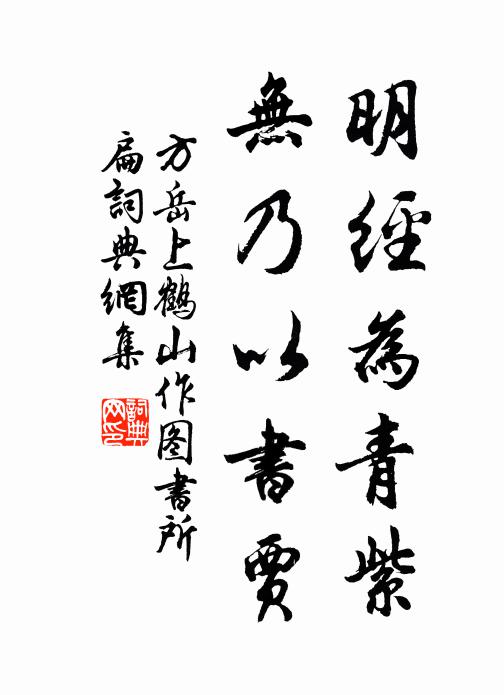 明經為青紫
無乃以書賈
方岳上鶴山作图書所
扁詞典網集
詞典网印